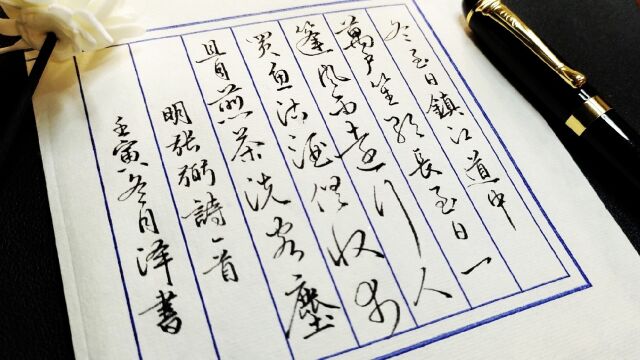 冬至日鎮江道中
萬戶笙歌長至日一
篷风雨遠行人
買魚沽酒俱收却
且自煎茶洗客塵
明张弼詩一首
壬寅冬月泽書